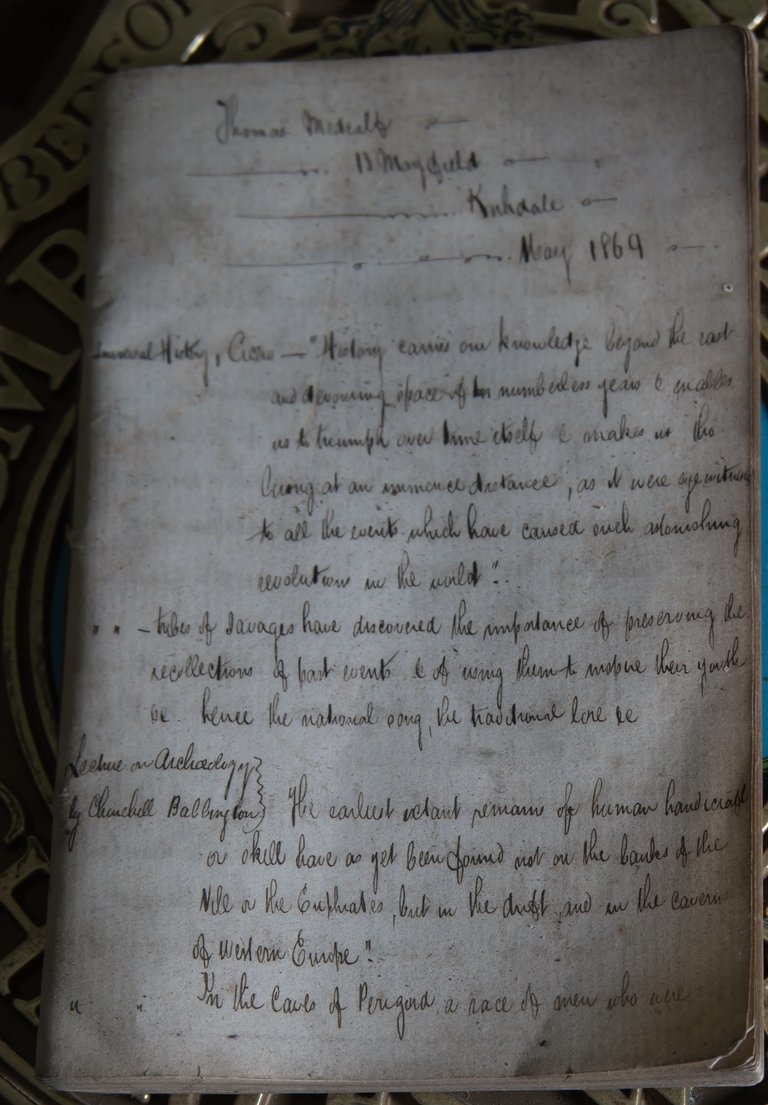 Thomas Metcalf
13 Mayfield
Kirkdale
May 1869
Universal History, Cicero — "History carries our knowledge beyond the vast
and devouring space of numberless years & enables
us to triumph over time itself & makes us tho
living at an immence distance, as it were eye witnesses
to all the events which have caused such astonishing
revolutions in the world".
" " – tribes of Savages have discovered the importance of preserving the
recollections of past events & of using them to inspire their youth
&c. hence the national song, the traditional lore &c
Lecture on Archæology
by Churchill Babbington
The earliest extant remains of human handicraft
or skill have as yet been found not on the banks of the
Nile or the Euphrates, but in the drift and in the cavern
of Western Europe".
" " In the Caves of Perigord a race of men who were
BEDFOR